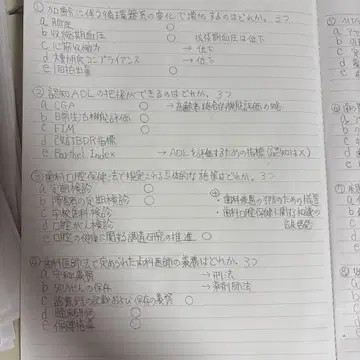 ① 加齢に伴う循環器系の変化で増加するのはどれか。3つ
a ○
b 収縮期血圧 ○ 拡張期血圧は低下
c 心筋収縮力 → 低下
d 大動脈コンプライアンス → 低下
e ○
② 認知ADLの把握ができるのはどれか。3つ
a CGA ○ → 高齢者総合的機能評価の略
b 日常生活機能評価 ○
c FIM ○
d 指標
e Barthel Index → ADLを評価するための指標(認知は×)
③ 歯科口腔保健法で規定される具体的な施策はどれか。3つ
a 定期検診 ○
b 障害者の定期検診 ○ ・歯科疾患の予防のための措置
c 学校歯科検診 ・歯科口腔保健に関する知識の
d 口腔がん検診
e 口腔の保健に関する調査研究の推進 ○
④ 歯科医師法で定められた歯科医師の義務はどれか。3つ
a 守秘義務 → 刑法
b 処方せんの保存 → 薬剤師法
c 診療録の記載および保存の義務 ○
d 臨床研修 ○
e 保健指導 ○